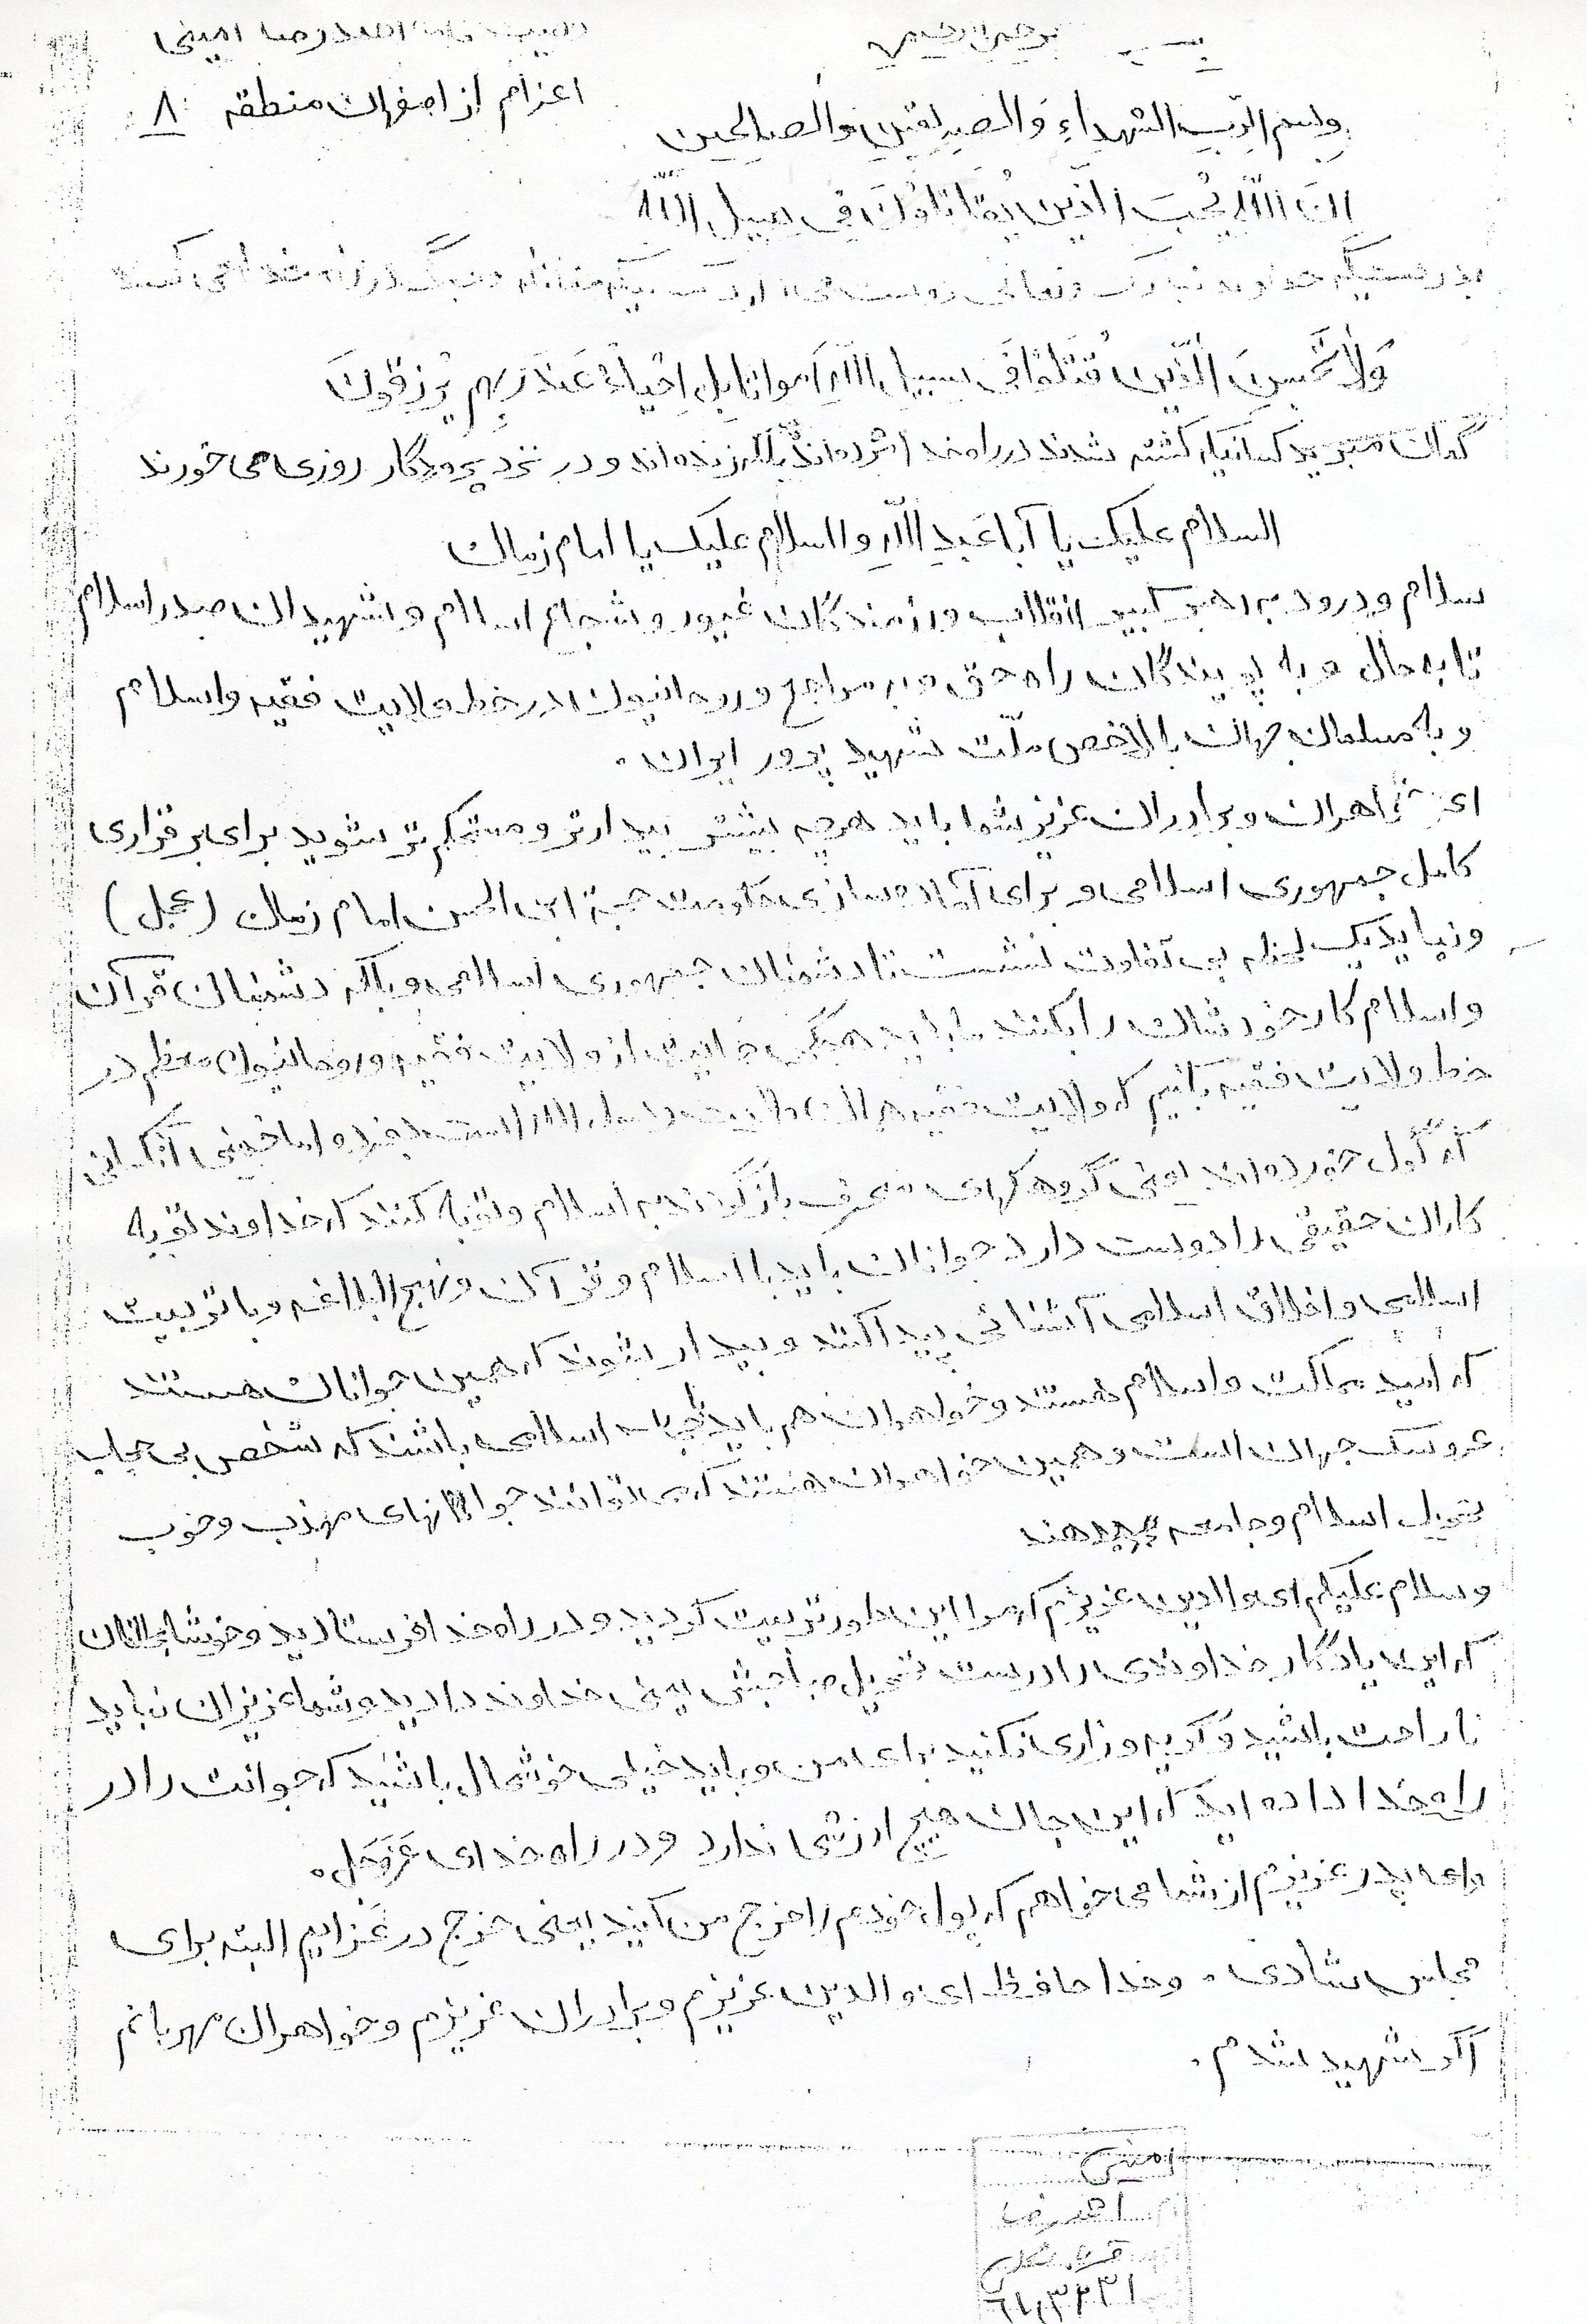 وصیت نامه احمد رضا امینی
اعزام از اصفهان منطقه ۸
وبسم الرّبِ الشهداءِ وَالصدیقینِ والصلحین
انَ اللّه یُحبَ الّذین یُقاتِلونَ فی سبیل اللّه
بدرستیکه خداوند تبارک وتعالی دوست می دارد کسانیکه جنگ در راه خدا می کنند
وَلاتَحسبنَ الّذینَ قُتلوُا فی سبیل اللّهِ اَمواتا بلِ اَحیاءُ عَندَ رَبِهم یُرزقُونَ
گمان مبرید کسانیکه کشته شدند در راه خدا مُرده اند بلکه زنده اند و در نزد پروردگار روزی می خورند
السلام علیک یا آبا عَبدِ اللّهِ والسلام علیک یا امام زمان
سلام و درود به رهبر کبیر انقلاب ورزمندگان غیور و شجاع اسلام و شهیدان صدر اسلام
تا به حال و به پویندگان راه حق و به مراجع و روحانیون در خط ولایت فقیه و اسلام
و به مسلمان جهان بالاخص ملّت شهید پرور ایران .
ای خواهران و برادران عزیز شما باید هرچه بیشتر بیدارتر و مستحکم تر شوید برای برقراری
کامل جمهوری اسلامی و برای آماده سازی حکومت حجة ابن الحسن امام زمان (عجل)
و نباید یک لحظه بی تفاوت نشست تا دشمنان جمهوری اسلامی و بلکه دشمنان قرآن
و اسلام کار خودشان را بکنند ما باید همگی حمایت از ولایت فقیه و روحانیون معظم در
خط ولایت فقیه بکنیم که ولایت فقیه همان ولایت رسول اللّه است آنکسانی
که گول خورده اند یعنی گروهکهای منحرف بازگردند به اسلام و توبه کنند که خداوند توبه
کاران حقیقی را دوست دارد جوانان باید با اسلام و قرآن و نهج البلاغه و با تربیت
اسلامی و اخلاق اسلامی آشنائی پیدا کنند و بیدار بشوند که همین جوانان هستند
که امید مملکت و اسلام هستند و خواهران هم باید حجاب اسلامی باشند که شخص بی حجاب
عروسک جهان است و همین خواهران هستند که می توانند جوانهای مهذب و خوب
تحویل اسلام و جامعه بدهند
و سلام علیکم ای والدین عزیزم که مرا این طور تربیت کردید و در راه خدا فرستادید و خوشابحالتان
که این یادگار خداوندی را درست تحویل صاحبش یعنی خداوند دادید و شما عزیزان نباید
ناراحت باشید و گریه و زاری نکنید برای من و باید خیلی خوشحال باشید که جوانت را در
راه خدا داده اید که این جان هیچ ارزشی ندارد و در راه خدای عَزوَجَل .
وای پدر عزیزم از شما می خواهم که پول خودم را خرج من کنید یعنی خرج در عَزایم البته برای
مجلس شادی . وخدا حافظ ای والدین عزیزم و برادران عزیزم و خواهران مهربانم
اگر شهید شدم .
امینی
احمد رضا